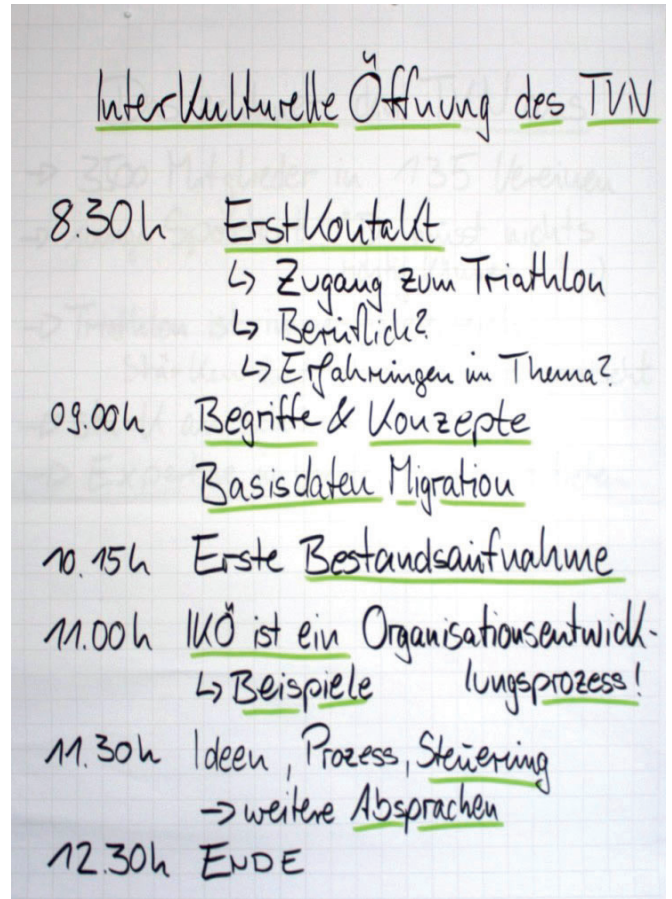 Interkulturelle Öffnung des TVN
8.30h Erstkontakt
↳ Zugang zum Triathlon
↳ Beruflich?
↳ Erfahrungen im Thema?
09.00h Begriffe & Konzepte
Basisdaten Migration
10.15h Erste Bestandsaufnahme
11.00h IKÖ ist ein Organisationsentwick-
↳ Beispiele lungsprozess!
11.30h Ideen, Prozess, Steuerung
→ weitere Absprachen
12.30h ENDE
→ 3500 Mitglieder in 135 Vereinen